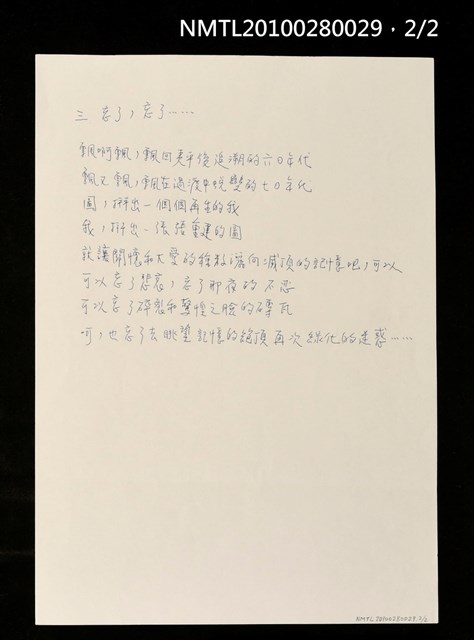 NMTL20100280029,2/2
三 忘了,忘了……
飄啊飄,飄回更早後追潮的六0年代
飄又飄,飄在過渡中蛻變的七0年代
圓,拼出一個個再生的我
我,拼出一張張重建的圓
就讓關懷和大愛的種籽灑向滅頂的記憶吧,可以
可以忘了悲哀,忘了那夜的不忍
可以忘了碎裂和驚惶之臉的磚瓦
呵,也忘了去眺望記憶的絕頂再次綠化的迷惑……
NMTL20100280029 2/2